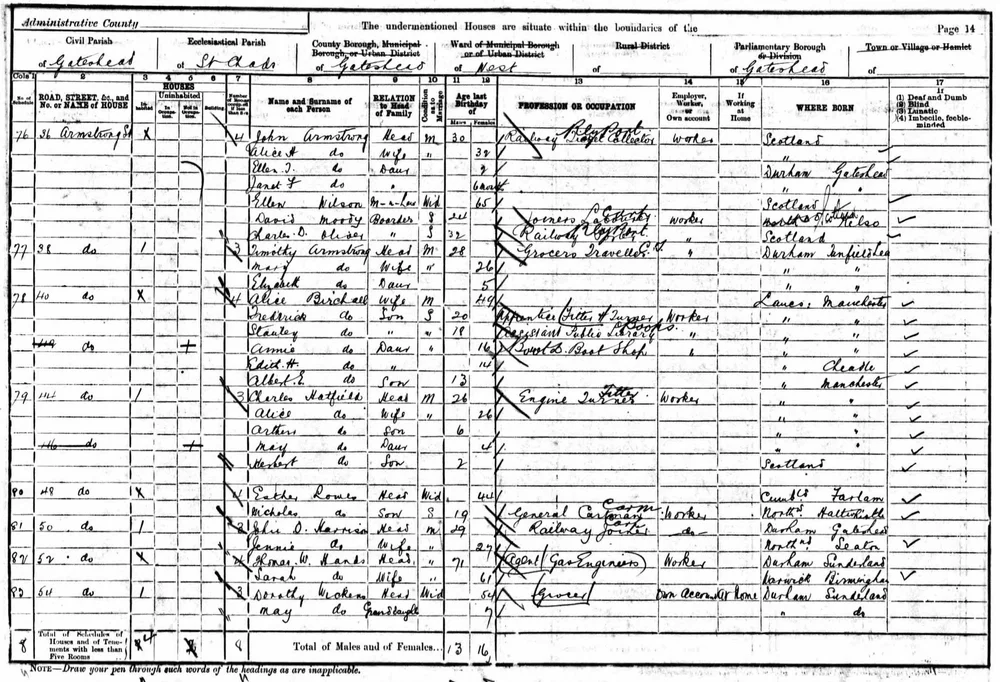 Administrative County
The undermentioned Houses are situate within the boundaries of the
Page 14
Civil Parish
of Gateshead
Ecclesiastical Parish
of St Chads
County Borough, Municipal Borough, or Urban District
of Gateshead
Ward of Municipal Borough or of Urban District
of West
Rural District
of
Parliamentary Borough or Division
of Gateshead
Town or Village or Hamlet
of
Cols 1 2 3 4 5 6 7 8 9 10 11 12 13 14 15 16 17
No. of Schedule
ROAD, STREET, &c., and No. or NAME of HOUSE
HOUSES
Inhabited
Uninhabited
In Occupation
Not in Occupation
Building
Name and Surname of each Person
RELATION to Head of Family
Condition as to Marriage
Age last Birthday of
Males Females
PROFESSION OR OCCUPATION
Employer, Worker, or Own account
If Working at Home
WHERE BORN
If
(1) Deaf and Dumb
(2) Blind
(3) Lunatic
(4) Imbecile, feeble-minded
76 36 Armstrong St X 4 John Armstrong Head M 30 Railway Collector Worker Scotland
Alice H do Wife " 32 "
Ellen J. do Daur 2 Durham Gateshead
Janet F do " 6 mnth " "
Ellen Wilson M-n-law Wid 65 Scotland
David Moody Boarder S 24 Joiners worker Kelso
Charles D. Oliver " S 32 Railway " Scotland
77 38 do 1 3 Timothy Armstrong Head M 28 Grocers Traveller " Durham
Mary do Wife " 26 " "
Elizabeth do Daur 5 " "
78 40 do X 4 Alice Birchall Wife M 49 Lancs: Manchester
Frederick do Son S 20 Apprentice Fitter & Turner Worker " "
Stanley do " " 18 Assistant Public Library " " "
do + Annie do Daur " 16 Boot Shop " " "
Edith H. do " 14 " Cheadle
Albert E. do Son 13 " Manchester
79 44 do 1 3 Charles Hatfield Head M 26 Engine Turner Fitter Worker " "
Alice do Wife " 26 " "
Arthur do Son 6 " "
46 do + May do Daur 4 " "
Herbert do Son 2 Scotland
80 48 do X 4 Esther Rowes Head Wid 44 Cumbld Farlam
Nicholas do Son S 19 General Carman Worker Northd
81 50 do 1 3 John D. Harrison Head M 29 Railway Joiner do Durham Gateshead
Jennie do Wife " 27 Northd Seaton
82 52 do X 4 Thomas W. Hands Head " 71 Agent (Gas Engineers) Worker Durham Sunderland
Sarah do Wife " 61 Warwick Birmingham
83 54 do 1 3 Dorothy Head Wid 54 Grocer Own Account At Home Durham Sunderland
May do Grandaugh 7 " do
8 Total of Schedules of Houses and of Tenements with less than Five Rooms 4 8 Total of Males and of Females... 13 16
NOTE—Draw your pen through such words of the headings as are inapplicable.